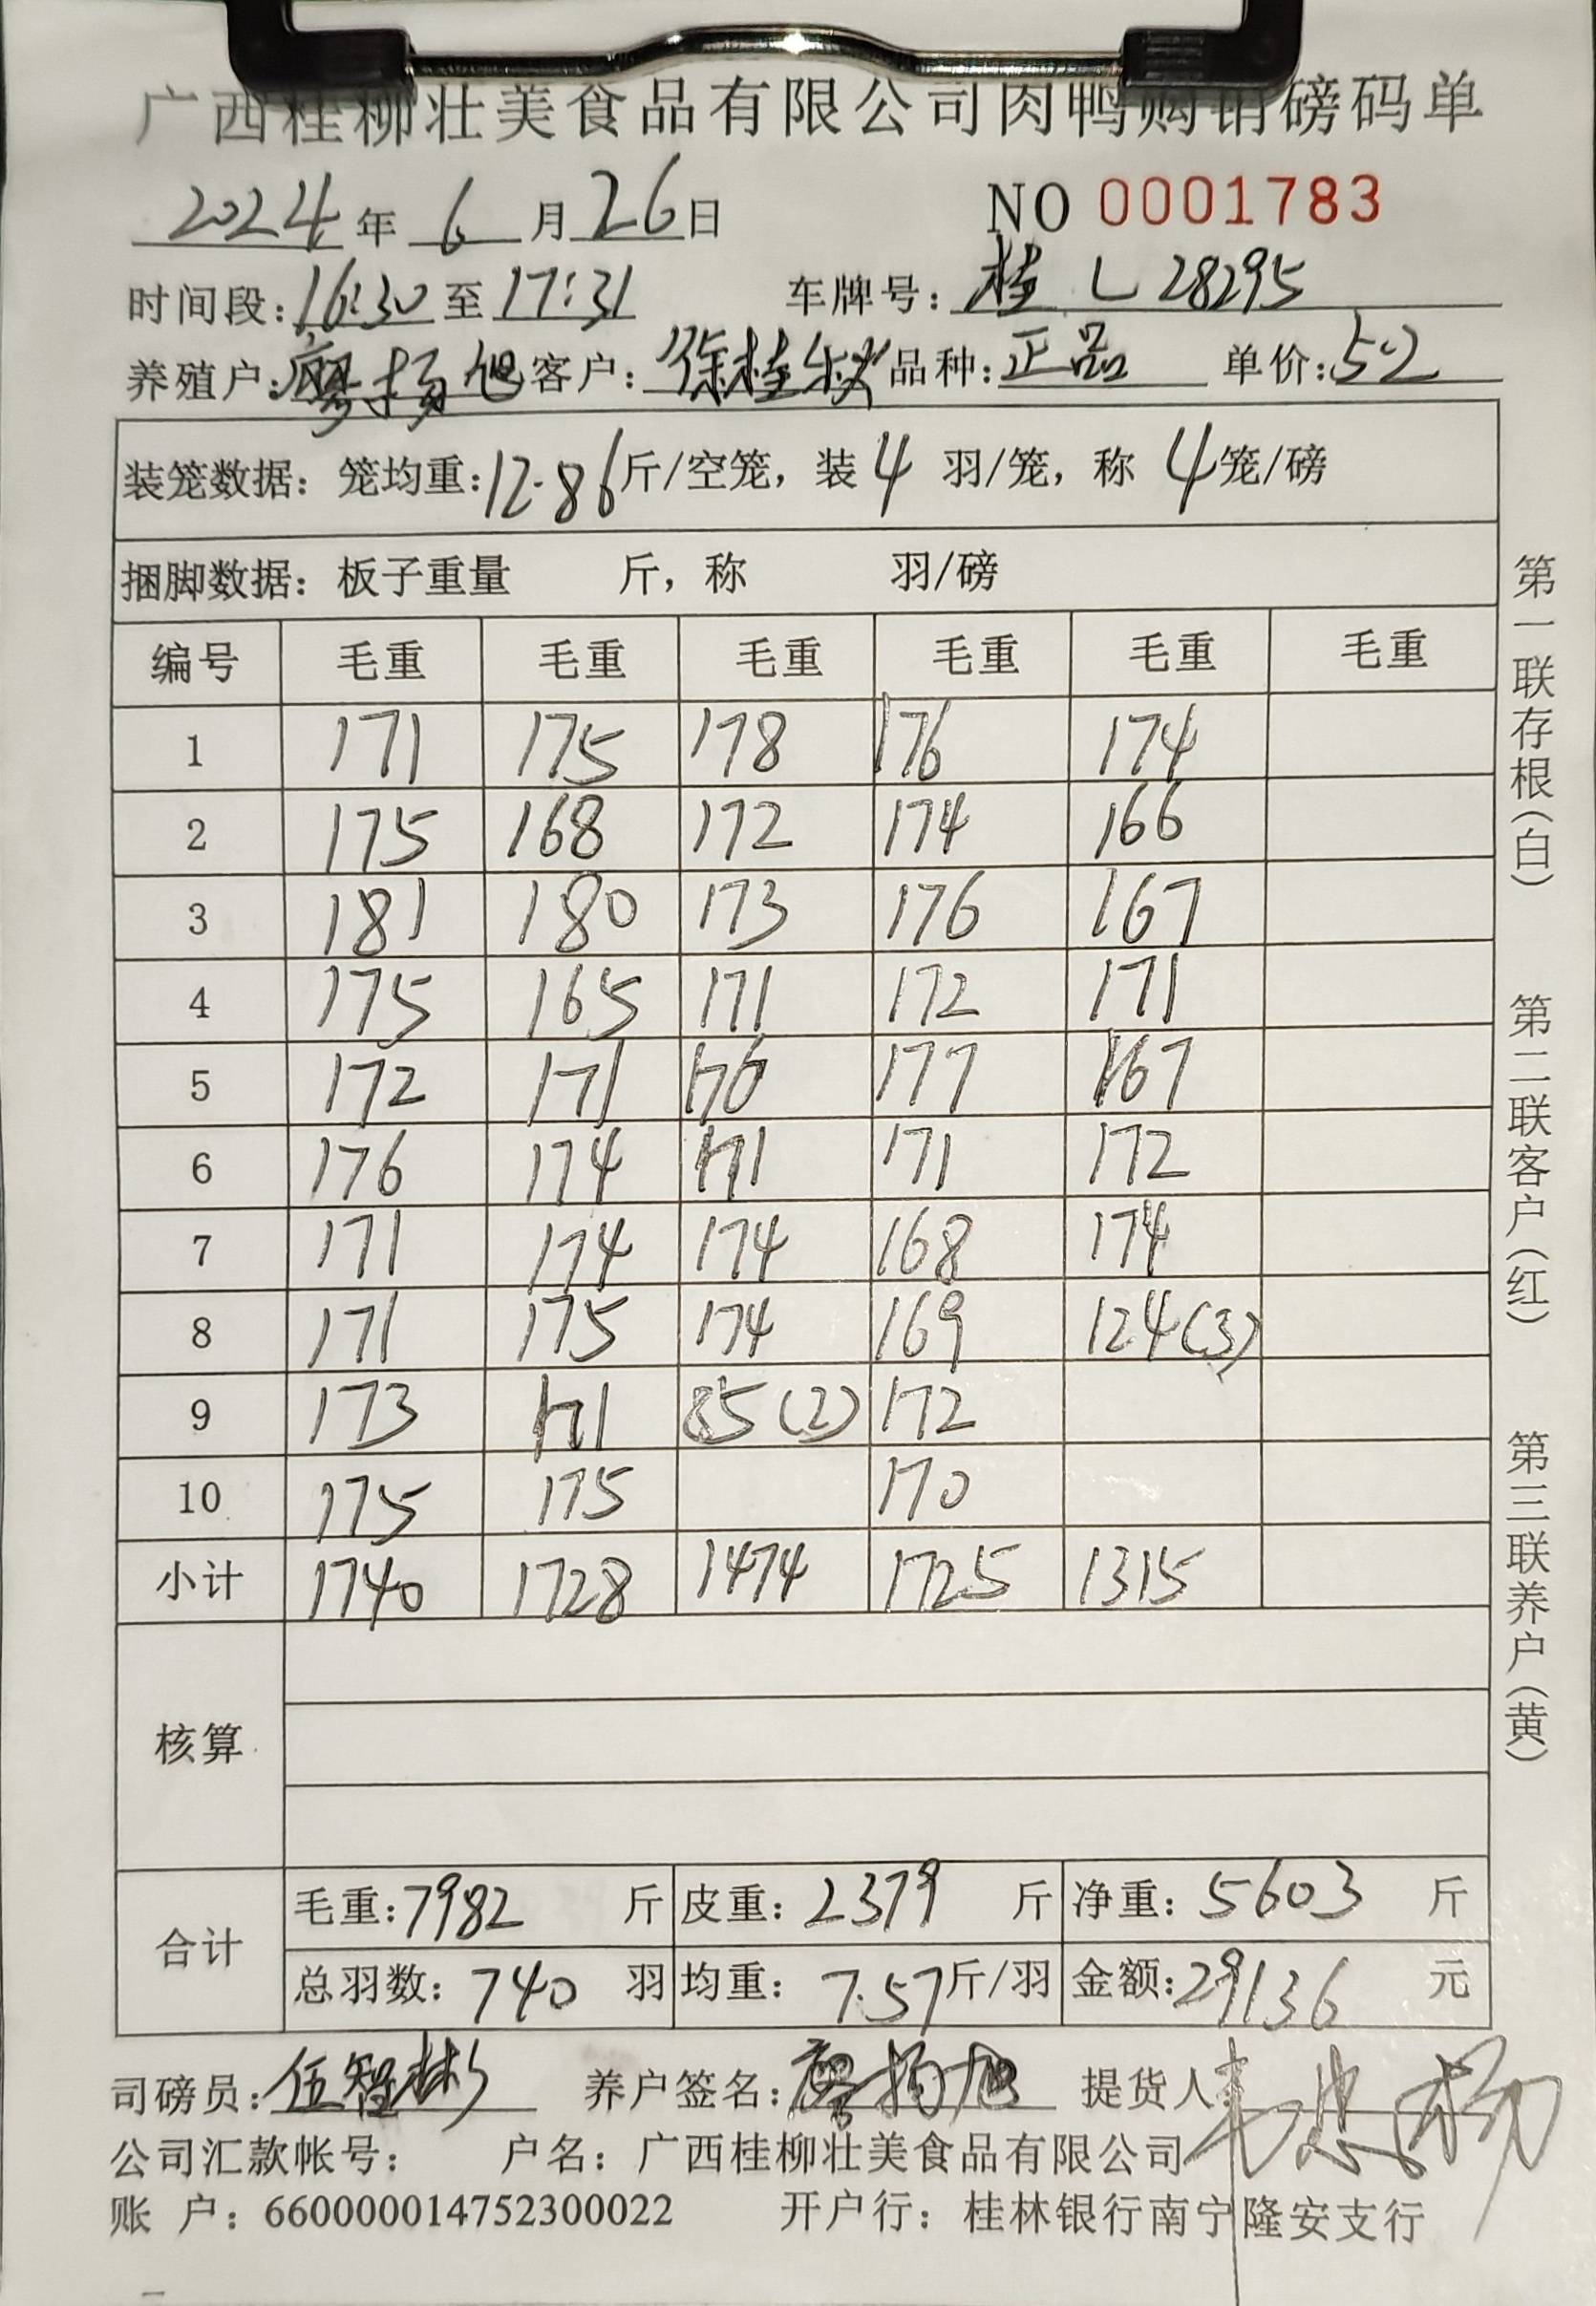 广西桂柳壮美食品有限公司肉鸭购销磅码单
2024年 6 月 26 日 NO 0001783
时间段:16:30 至 17:31 车牌号: 桂 L 28295
养殖户:廖扬旭 客户: 徐桂 品种:正品 单价:5.2
装笼数据: 笼均重:12.86斤/空笼, 装 4 羽/笼, 称 4 笼/磅
捆脚数据: 板子重量 斤, 称 羽/磅
编号 毛重 毛重 毛重 毛重 毛重 毛重
1 171 175 178 176 174
2 175 168 172 174 166
3 181 180 173 176 167
4 175 165 171 172 171
5 172 171 176 177 167
6 176 174 171 171 172
7 171 174 174 168 174
8 171 175 174 169 124(3)
9 173 171 85(2) 172
10 175 175 170
小计 1740 1728 1474 1725 1315
核算
合计 毛重:7982 斤 皮重: 2379 斤 净重: 5603 斤
总羽数: 740 羽 均重: 7.57斤/羽 金额:29136 元
司磅员:伍智彬 养户签名:廖扬旭 提货人:
公司汇款帐号: 户名: 广西桂柳壮美食品有限公司
账 户: 660000014752300022 开户行: 桂林银行南宁隆安支行
第一联存根(白)
第二联客户(红)
第三联养户(黄)